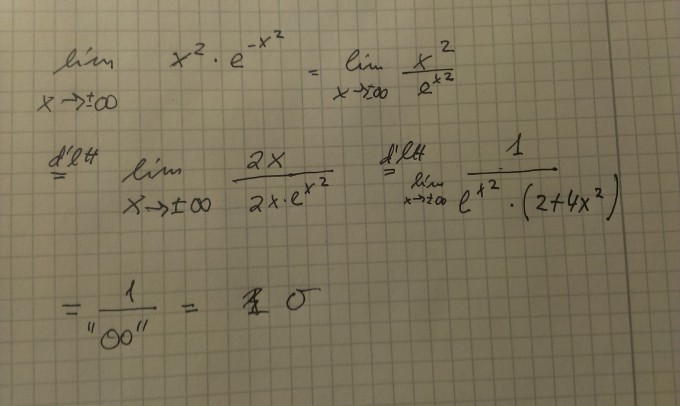 lim x→±∞ x² · e^(-x²) = lim x→±∞ x² / e^(x²)
d'lH = lim x→±∞ 2x / (2x · e^(x²)) d'lH = lim x→±∞ 1 / (e^(x²) · (2+4x²))
= 1 / "∞" = 0